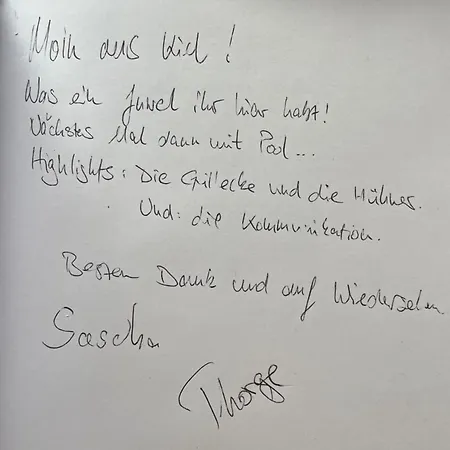 Moin aus Kiel!
Was ein Juwel ihr hier habt!
Nächstes Mal dann mit Pool...
Highlights: Die Grillecke und die Hühner.
Und: die Kommunikation.
Besten Dank und auf Wiedersehen
Sascha
Thorge